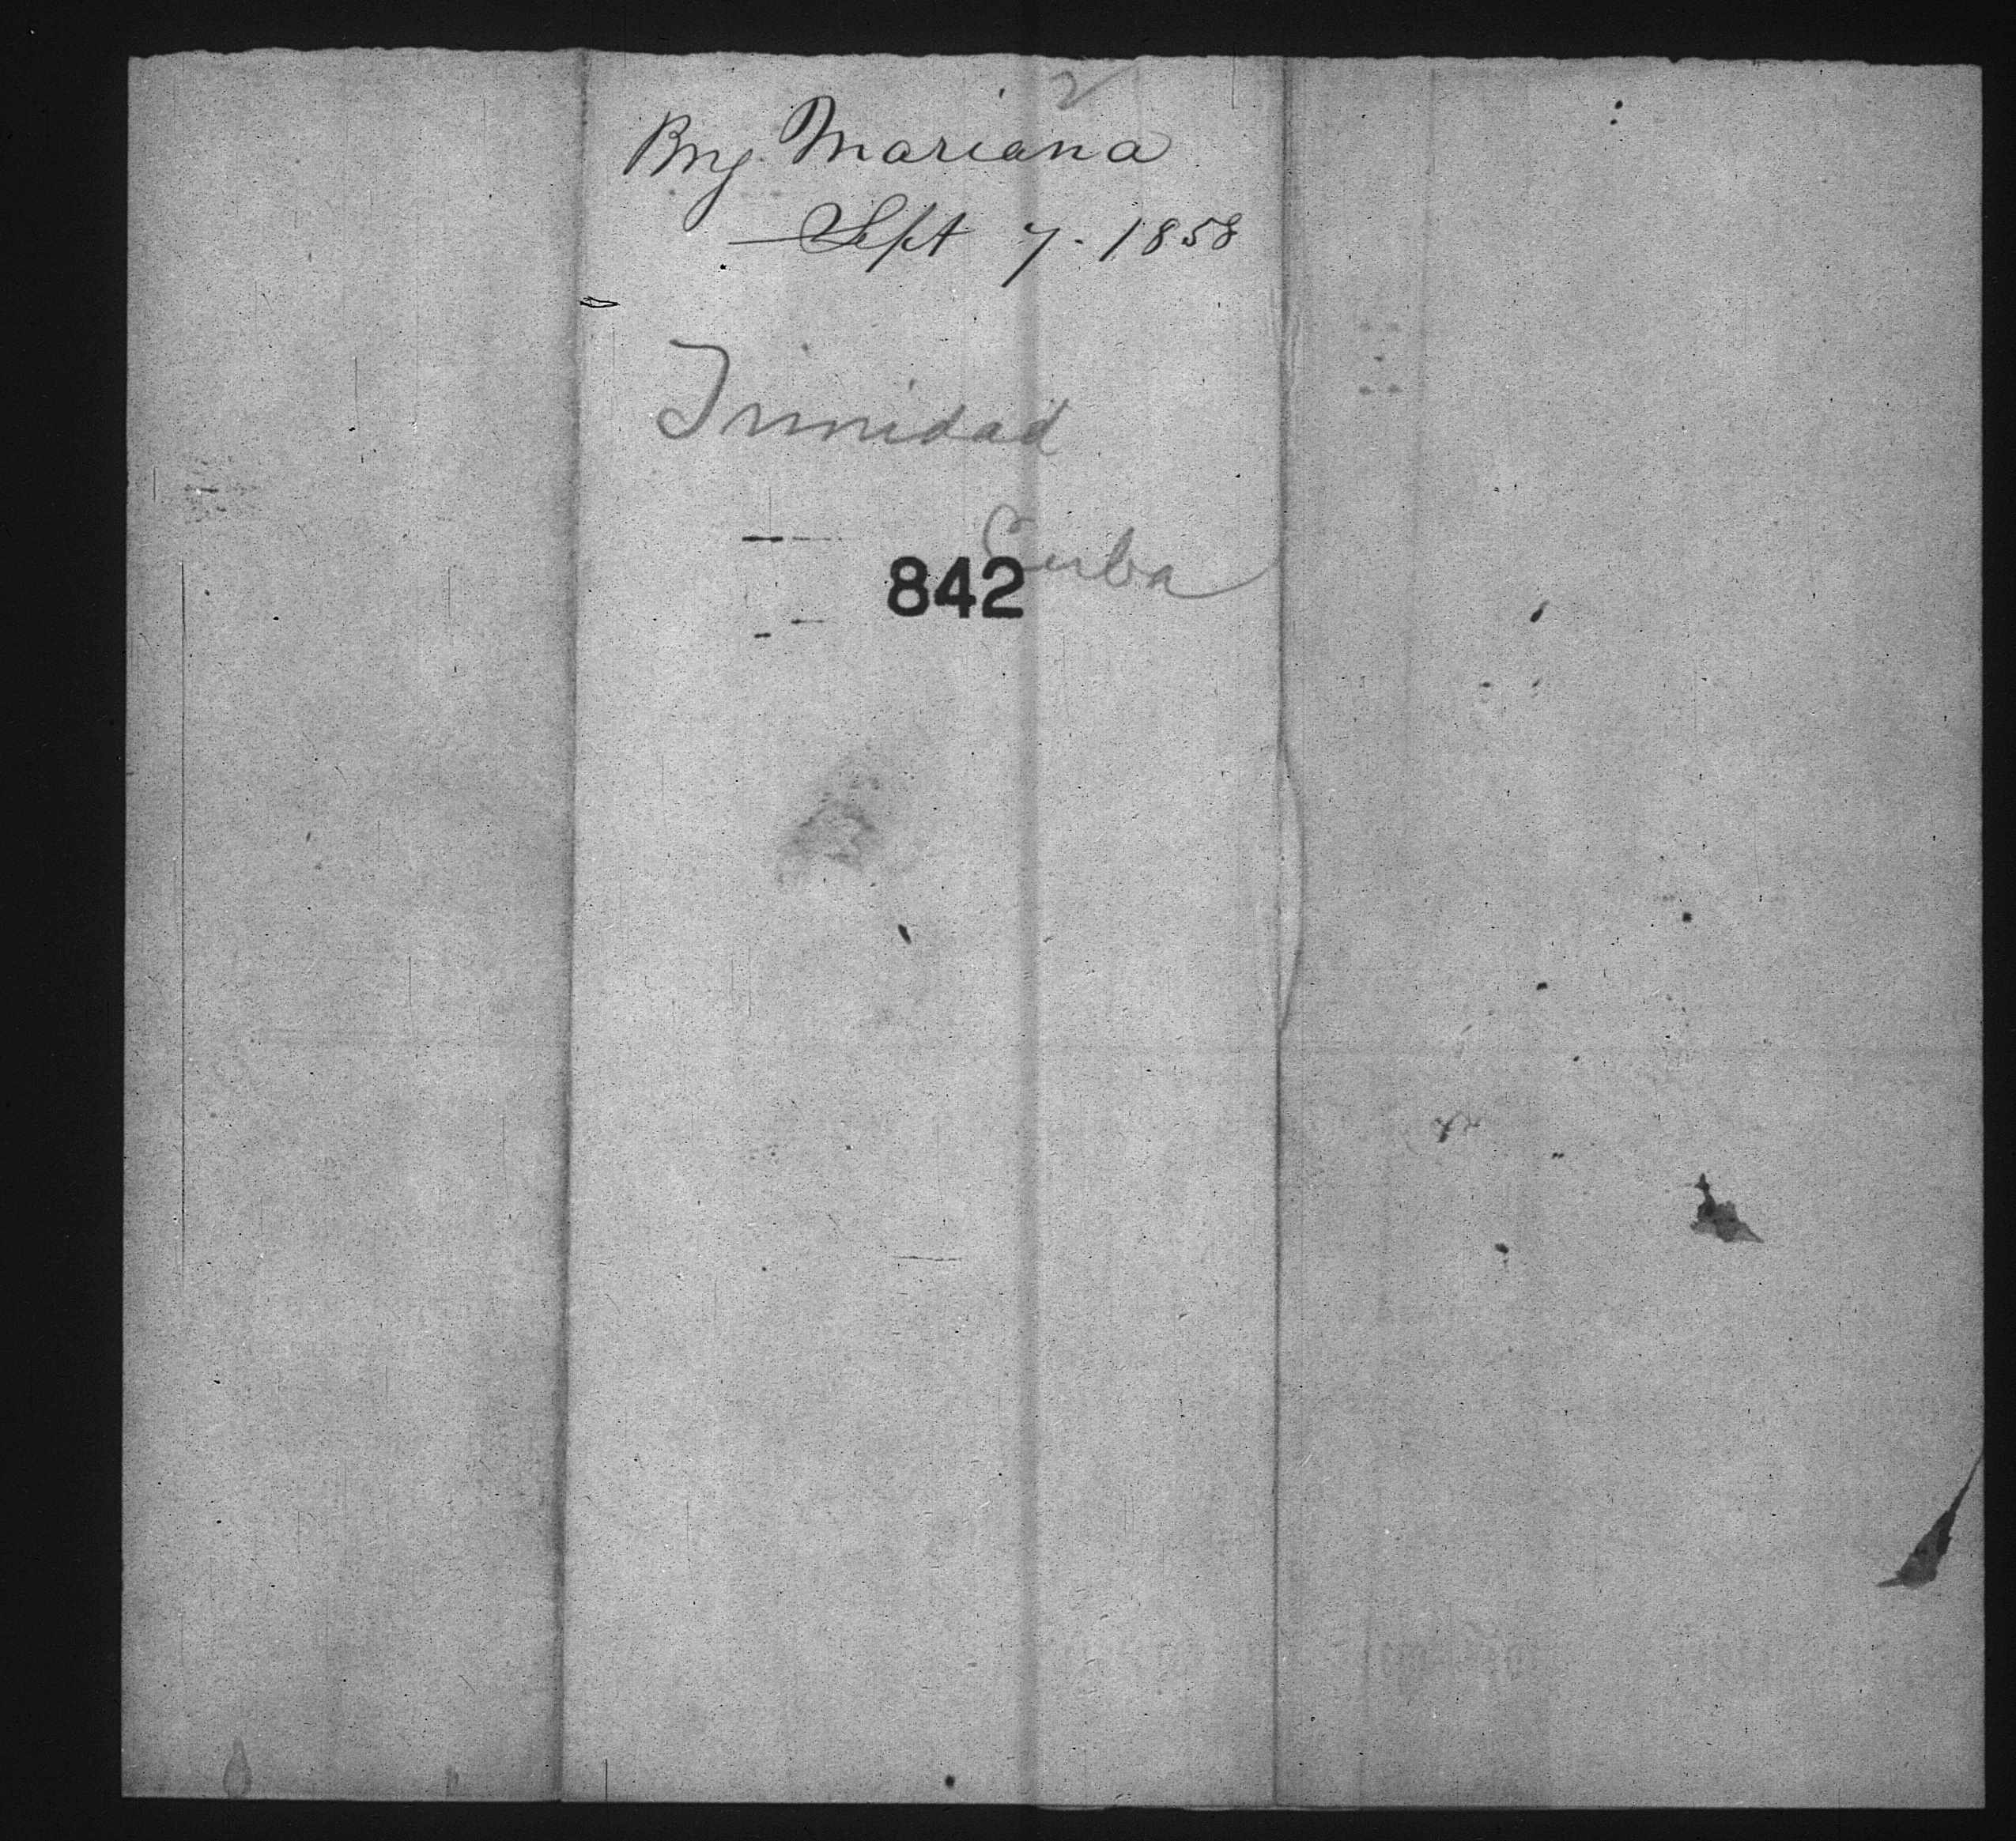 2
Brig Mariana
Sept 7. 1858
Trinidad
Cuba
842